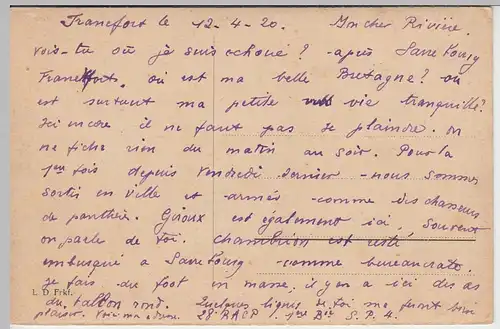 Francfort le 12-4-20. Mon cher Rivière.
vois-tu où je suis échoué? - après Sarrebourg
Francfort. où est ma belle Bretagne? où
est surtout ma petite vie tranquille?
Ici encore il ne faut pas se plaindre. on
ne fiche rien du matin au soir. Pour la
1ère fois depuis vendredi dernier - nous sommes
sortis en ville et armés - comme des chasseurs
de panthère. Giroux est également ici, Souvent
on parle de toi. Chambrion est resté
embusqué à Sarrebourg - comme bureaucrate.
Je fais du foot en masse, il y en a ici des as
du ballon rond. Quelques lignes de toi me feront bien
L. D. Frkf.
plaisir. Voici mon adresse. 28e RACP 1ère Bie S.P. 4.